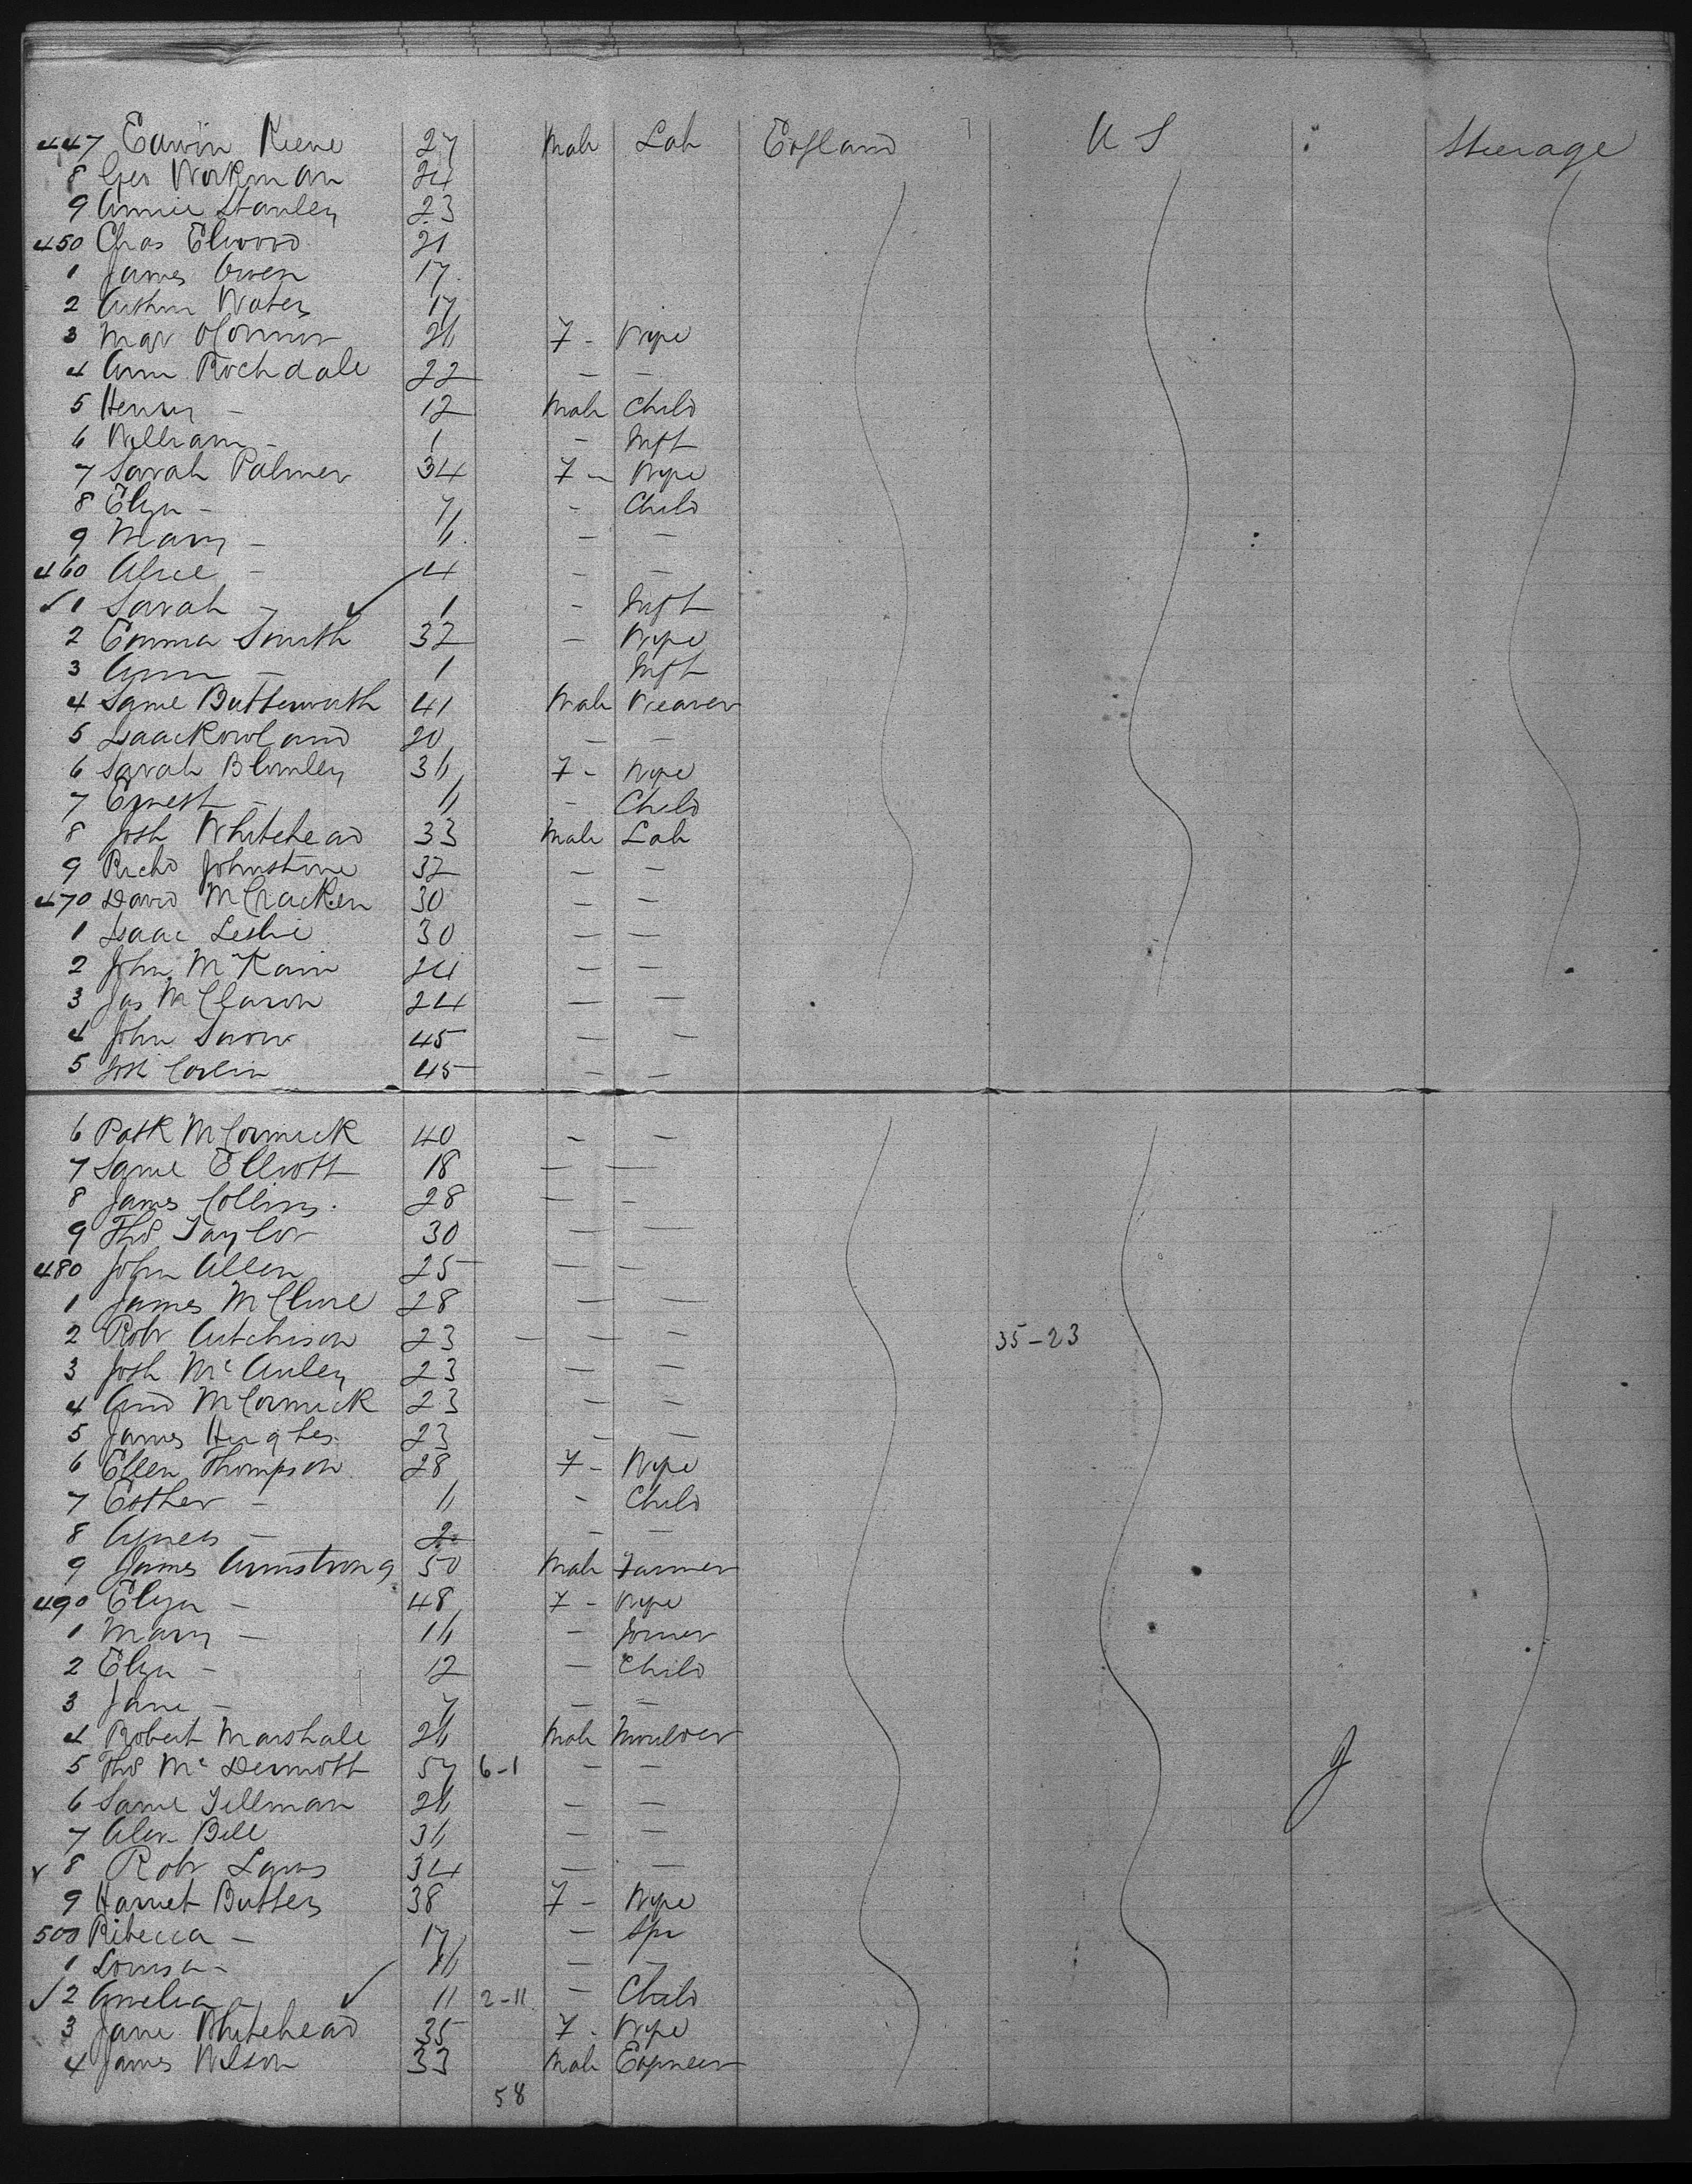 447 Edwin Keene 27 Male Lab England U S Steerage
8 Geo Workman 24
9 Annie Stanley 23
450 Chas Elwood 21
1 James Owen 17
2 Arthur Waters 17
3 Mar OConnor 26 F - Wife
4 Ann Rochdale 22 - -
5 Henry - 12 Male Child
6 William - 1 - Inft
7 Sarah Palmer 34 F - Wife
8 Elza - 7 - Child
9 Mary - 6 - -
460 Alice - 4 - -
1 Sarah - 1 - Inft
2 Emma Smith 32 - Wife
3 Ann - 1 Inft
4 Saml Butterworth 41 Male Weaver
5 Isaac Rowland 20 - -
6 Sarah Blomley 36 F - Wife
7 Ernest - 6 - Child
8 Josh Whitehead 33 Male Lab
9 Richd Johnstone 32 - -
470 David McCracken 30 - -
1 Isaac Leslie 30 - -
2 John McKain 24 - -
3 Jas 24 - -
4 John 45 - -
5 45 - -
6 Patk McCormick 40 - -
7 Saml Elliott 18 - -
8 James Collins 28 - -
9 Tho Taylor 30 - -
480 John Allen 25 - -
1 James McClure 28 - -
2 Robr Autchison 23 - - - 35-23
3 Josh McAuley 23 - -
4 And McCormick 23 - -
5 James Hughes 23 - -
6 Ellen Thompson 28 F - Wife
7 Esther - 6 - Child
8 Agnes - 2 - -
9 James Armstrong 50 Male Farmer
490 Elza - 48 F - Wife
1 Mary - 16 - Joiner
2 Elza - 12 - Child
3 Jane - 7 - -
4 Robert Marshall 26 Male Moulder
5 Tho McDermott 57 6-1 - -
6 Saml Tillman 26 - -
7 Alex Bell 36 - -
8 Robr Laws 34 - -
9 Harriet Butters 38 F - Wife
500 Ribecca - 17 - Spr
1 Louisa - 16 - -
2 Amelia - 11 2-11 - Child
3 Jane Whitehead 35 F - Wife
4 James Wilson 33 Male Engineer
58